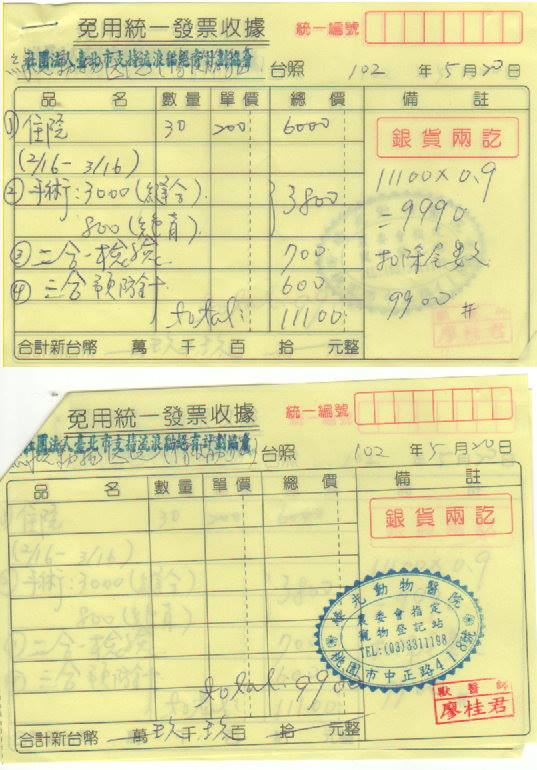 免用統一發票收據
統一編號
社團法人臺北市支持流浪貓絕育計劃協會
台照 102 年 5 月 20 日
品 名 數量 單價 總 價 備 註
① 住院 30 200 6000
銀貨兩訖
(2/16 - 3/16)
11100 x 0.9
② 手術: 3000 (縫合)
800 (絕育)
3800
= 9990
③ 二合一檢驗 700
扣除尾數
④ 三合預防針 600
9900 #
total: 11100
獸醫師
廖桂君
合計新台幣 萬 玖 千 玖 百 拾 元整
免用統一發票收據
統一編號
社團法人臺北市支持流浪貓絕育計劃協會
台照 102 年 5 月 20 日
品 名 數量 單價 總 價 備 註
住院 30 200 6000
銀貨兩訖
(2/16 - 3/16)
手術: 3000 (縫合)
800 (絕育)
3800
二合一檢驗 700
三合預防針 600
動物醫院
農委會指定
寵物登記站
TEL:(03)3311198
桃園市中正路418號
total: 990
獸醫師
廖桂君
合計新台幣 萬 玖 千 玖 百 拾 元整